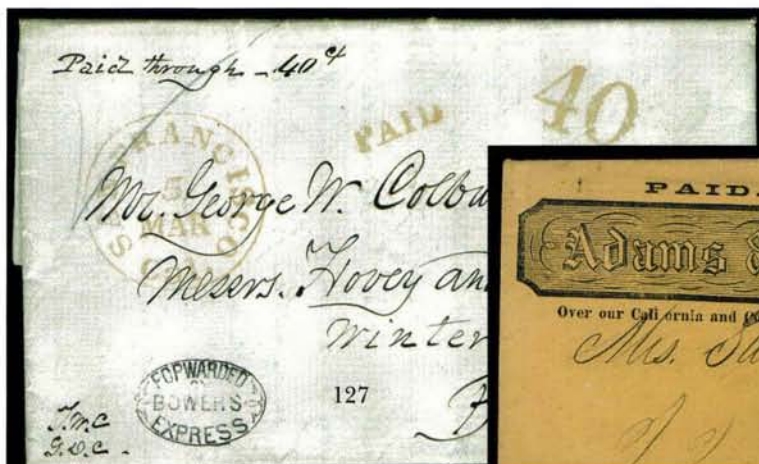 Paid through - 40 ct
PAID
40
SAN FRANCISCO
5
MAR
CAL.
Mr. George W. Colbu
Messrs. Hovey an
Winter
FORWARDED
BY
BOWERS
EXPRESS
127
G.D.C.
PAID.
Adams &
Over our California and
Mrs.